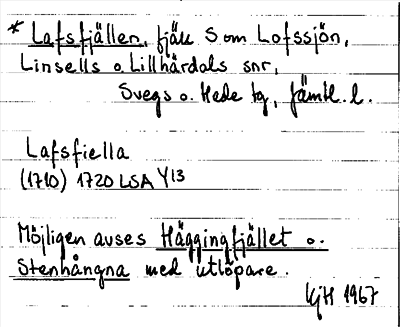 * Lafsfjällen, fjäll S om Lofssjön,
Linsells o. Lillhärdals snr,
Svegs o. Hede tg, Jämtl. l.
Lafsfiella
(1710) 1720 LSA Y13
Möjligen avses Häggingfjället o.
Stenhångna med utlöpare.
KjH 1967